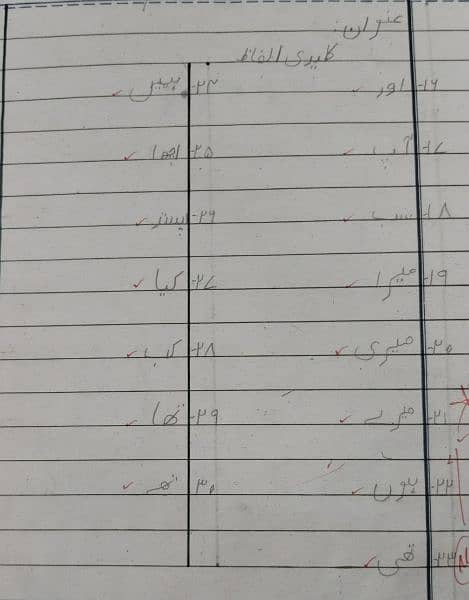 عنوان:
کلیدی الفاظ
۱۶- اور
۱۷- آپ
۱۸- سب
۱۹- میرا
۲۰- میری
۲۱- میرے
۲۲- ہوں
۲۳- تھی
۲۴- ہیں
۲۵- اچھا
۲۶- پسند
۲۷- کیا
۲۸- کب
۲۹- تھا
۳۰- تھے